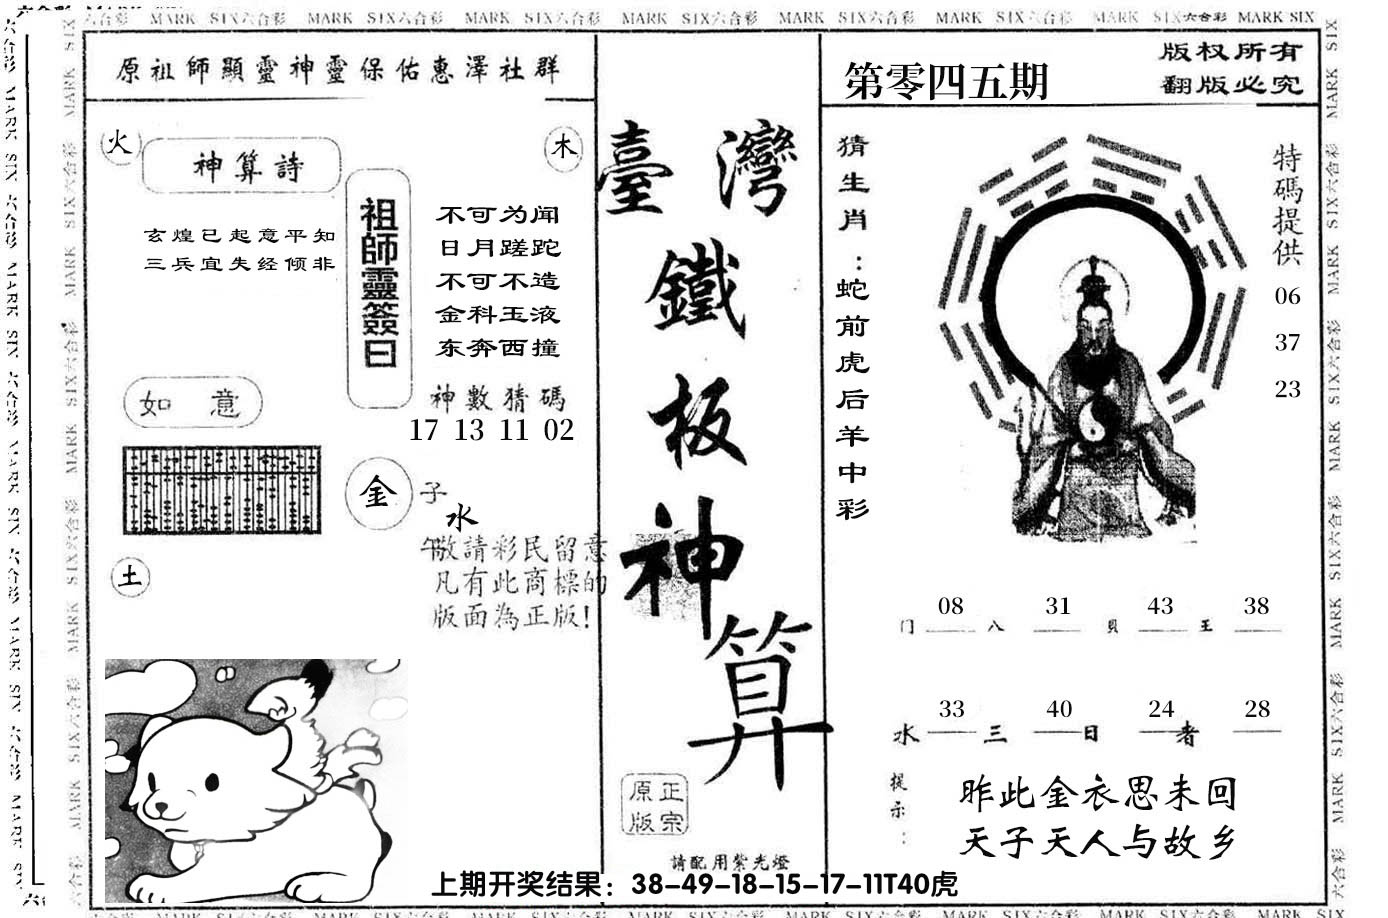 原祖師顯靈神靈保佑惠澤社群
火
木
神算詩
玄煌已起意平知
三兵宜失经倾非
祖師靈簽曰
不可为闻
日月蹉跎
不可不造
金科玉液
东奔西撞
神數猜碼
17 13 11 02
如意
金
子
水
午
敬請彩民留意
凡有此商標的
版面為正版!
土
臺灣
鐵板神算
正宗
原版
請配用紫光燈
第零四五期
版权所有
翻版必究
猜生肖:蛇前虎后羊中彩
特碼提供
06
37
23
08 31 43 38
门 八 貝 王
33 40 24 28
水 三 日 者
提示:
昨此金衣思未回
天子天人与故乡
上期开奖结果：38-49-18-15-17-11T40虎
MARK SIX六合彩 MARK SIX六合彩 MARK SIX六合彩 MARK SIX六合彩 MARK SIX六合彩 MARK SIX六合彩 MARK SIX六合彩 MARK SIX